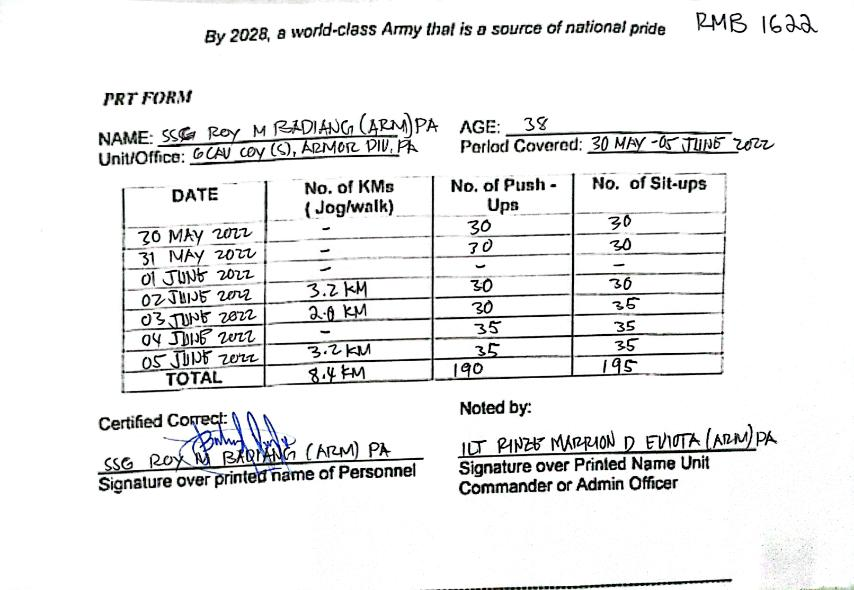 By 2028, a world-class Army that is a source of national pride RMB 1622
PRT FORM
NAME: SSG ROY M BADIANG (ARM) PA AGE: 38
Unit/Office: GCAV COY (S), ARMOR DIV, PA Period Covered: 30 MAY - 05 JUNE 2022
DATE No. of KMs ( Jog/walk) No. of Push - Ups No. of Sit-ups
30 MAY 2022 - 30 30
31 MAY 2022 - 30 30
01 JUNE 2022 - - -
02 JUNE 2022 3.2 KM 30 30
03 JUNE 2022 2.0 KM 30 35
04 JUNE 2022 - 35 35
05 JUNE 2022 3.2 KM 35 35
TOTAL 8.4 KM 190 195
Certified Correct: Noted by:
SSG ROY M BADIANG (ARM) PA 1LT RINZE MARRION D EVIOTA (ARM) PA
Signature over printed name of Personnel Signature over Printed Name Unit
Commander or Admin Officer